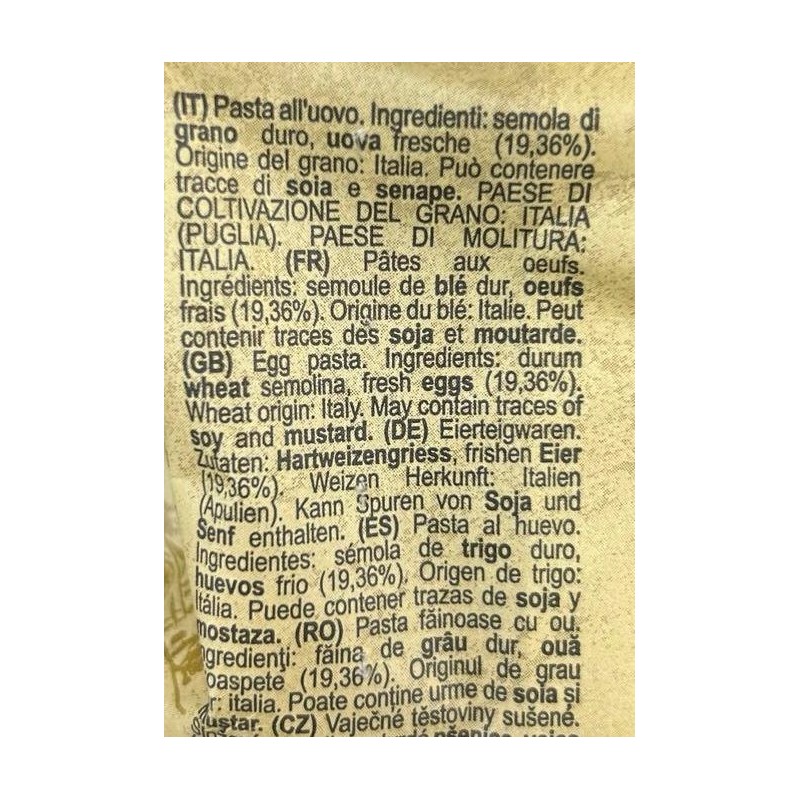 (IT) Pasta all'uovo. Ingredienti: semola di
grano duro, uova fresche (19,36%).
Origine del grano: Italia. Può contenere
tracce di soia e senape. PAESE DI
COLTIVAZIONE DEL GRANO: ITALIA
(PUGLIA). PAESE DI MOLITURA:
ITALIA. (FR) Pâtes aux oeufs.
Ingrédients: semoule de blé dur, oeufs
frais (19,36%). Origine du blé: Italie. Peut
contenir traces des soja et moutarde.
(GB) Egg pasta. Ingredients: durum
wheat semolina, fresh eggs (19,36%).
Wheat origin: Italy. May contain traces of
soy and mustard. (DE) Eierteigwaren.
Zutaten: Hartweizengriess, frishen Eier
(19,36%). Weizen Herkunft: Italien
(Apulien). Kann Spuren von Soja und
Senf enthalten. (ES) Pasta al huevo.
Ingredientes: sémola de trigo duro,
huevos frio (19,36%). Origen de trigo:
Itália. Puede contener trazas de soja y
mostaza. (RO) Pasta făinoase cu ou.
ngredienţi: făina de grâu dur, ouă
oaspete (19,36%). Originul de grau
r: italia. Poate conţine urme de soia și
muştar. (CZ) Vaječné těstoviny sušené.